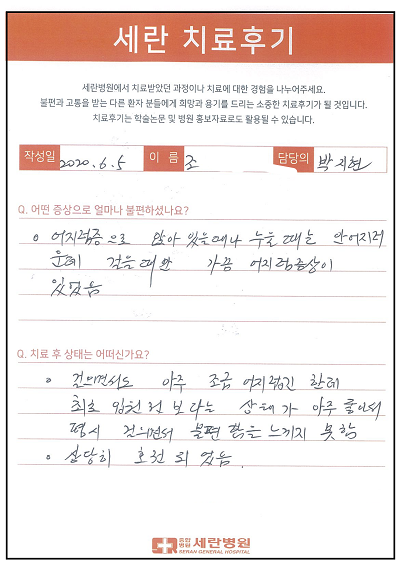 세란 치료후기
세란병원에서 치료받았던 과정이나 치료에 대한 경험을 나누어주세요.
불편과 고통을 받는 다른 환자 분들에게 희망과 용기를 드리는 소중한 치료후기가 될 것입니다.
치료후기는 학술논문 및 병원 홍보자료로도 활용될 수 있습니다.
작성일 2020.6.5 이 름 조 담당의 박지현
Q. 어떤 증상으로 얼마나 불편하셨나요?
o 어지럼증으로 앉아 있을때나 누울때는 안어지러
운데 걸을때만 가끔 어지럼증상이
있었음
Q. 치료 후 상태는 어떠신가요?
o 걸으면서도 아주 조금 어지럽긴 한데
최초 입원전 보다는 상태가 아주 좋아져
평시 걸으면서 불편함을 느끼지 못함
o 상당히 호전 되었음.
종합병원 세란병원
SERAN GENERAL HOSPITAL